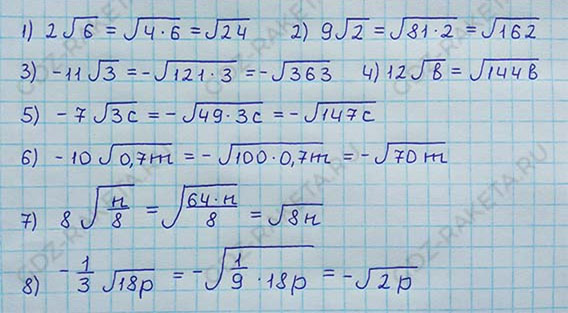 1) 2√6 = √(4·6) = √24 2) 9√2 = √(81·2) = √162
3) -11√3 = -√(121·3) = -√363 4) 12√в = √(144в)
5) -7√(3с) = -√(49·3с) = -√(147с)
6) -10√(0,7m) = -√(100·0,7m) = -√(70m)
7) 8√(н/8) = √((64·н)/8) = √(8н)
8) -1/3 √(18p) = -√(1/9 ·18p) = -√(2p)
GDZ-RAKETA.RU